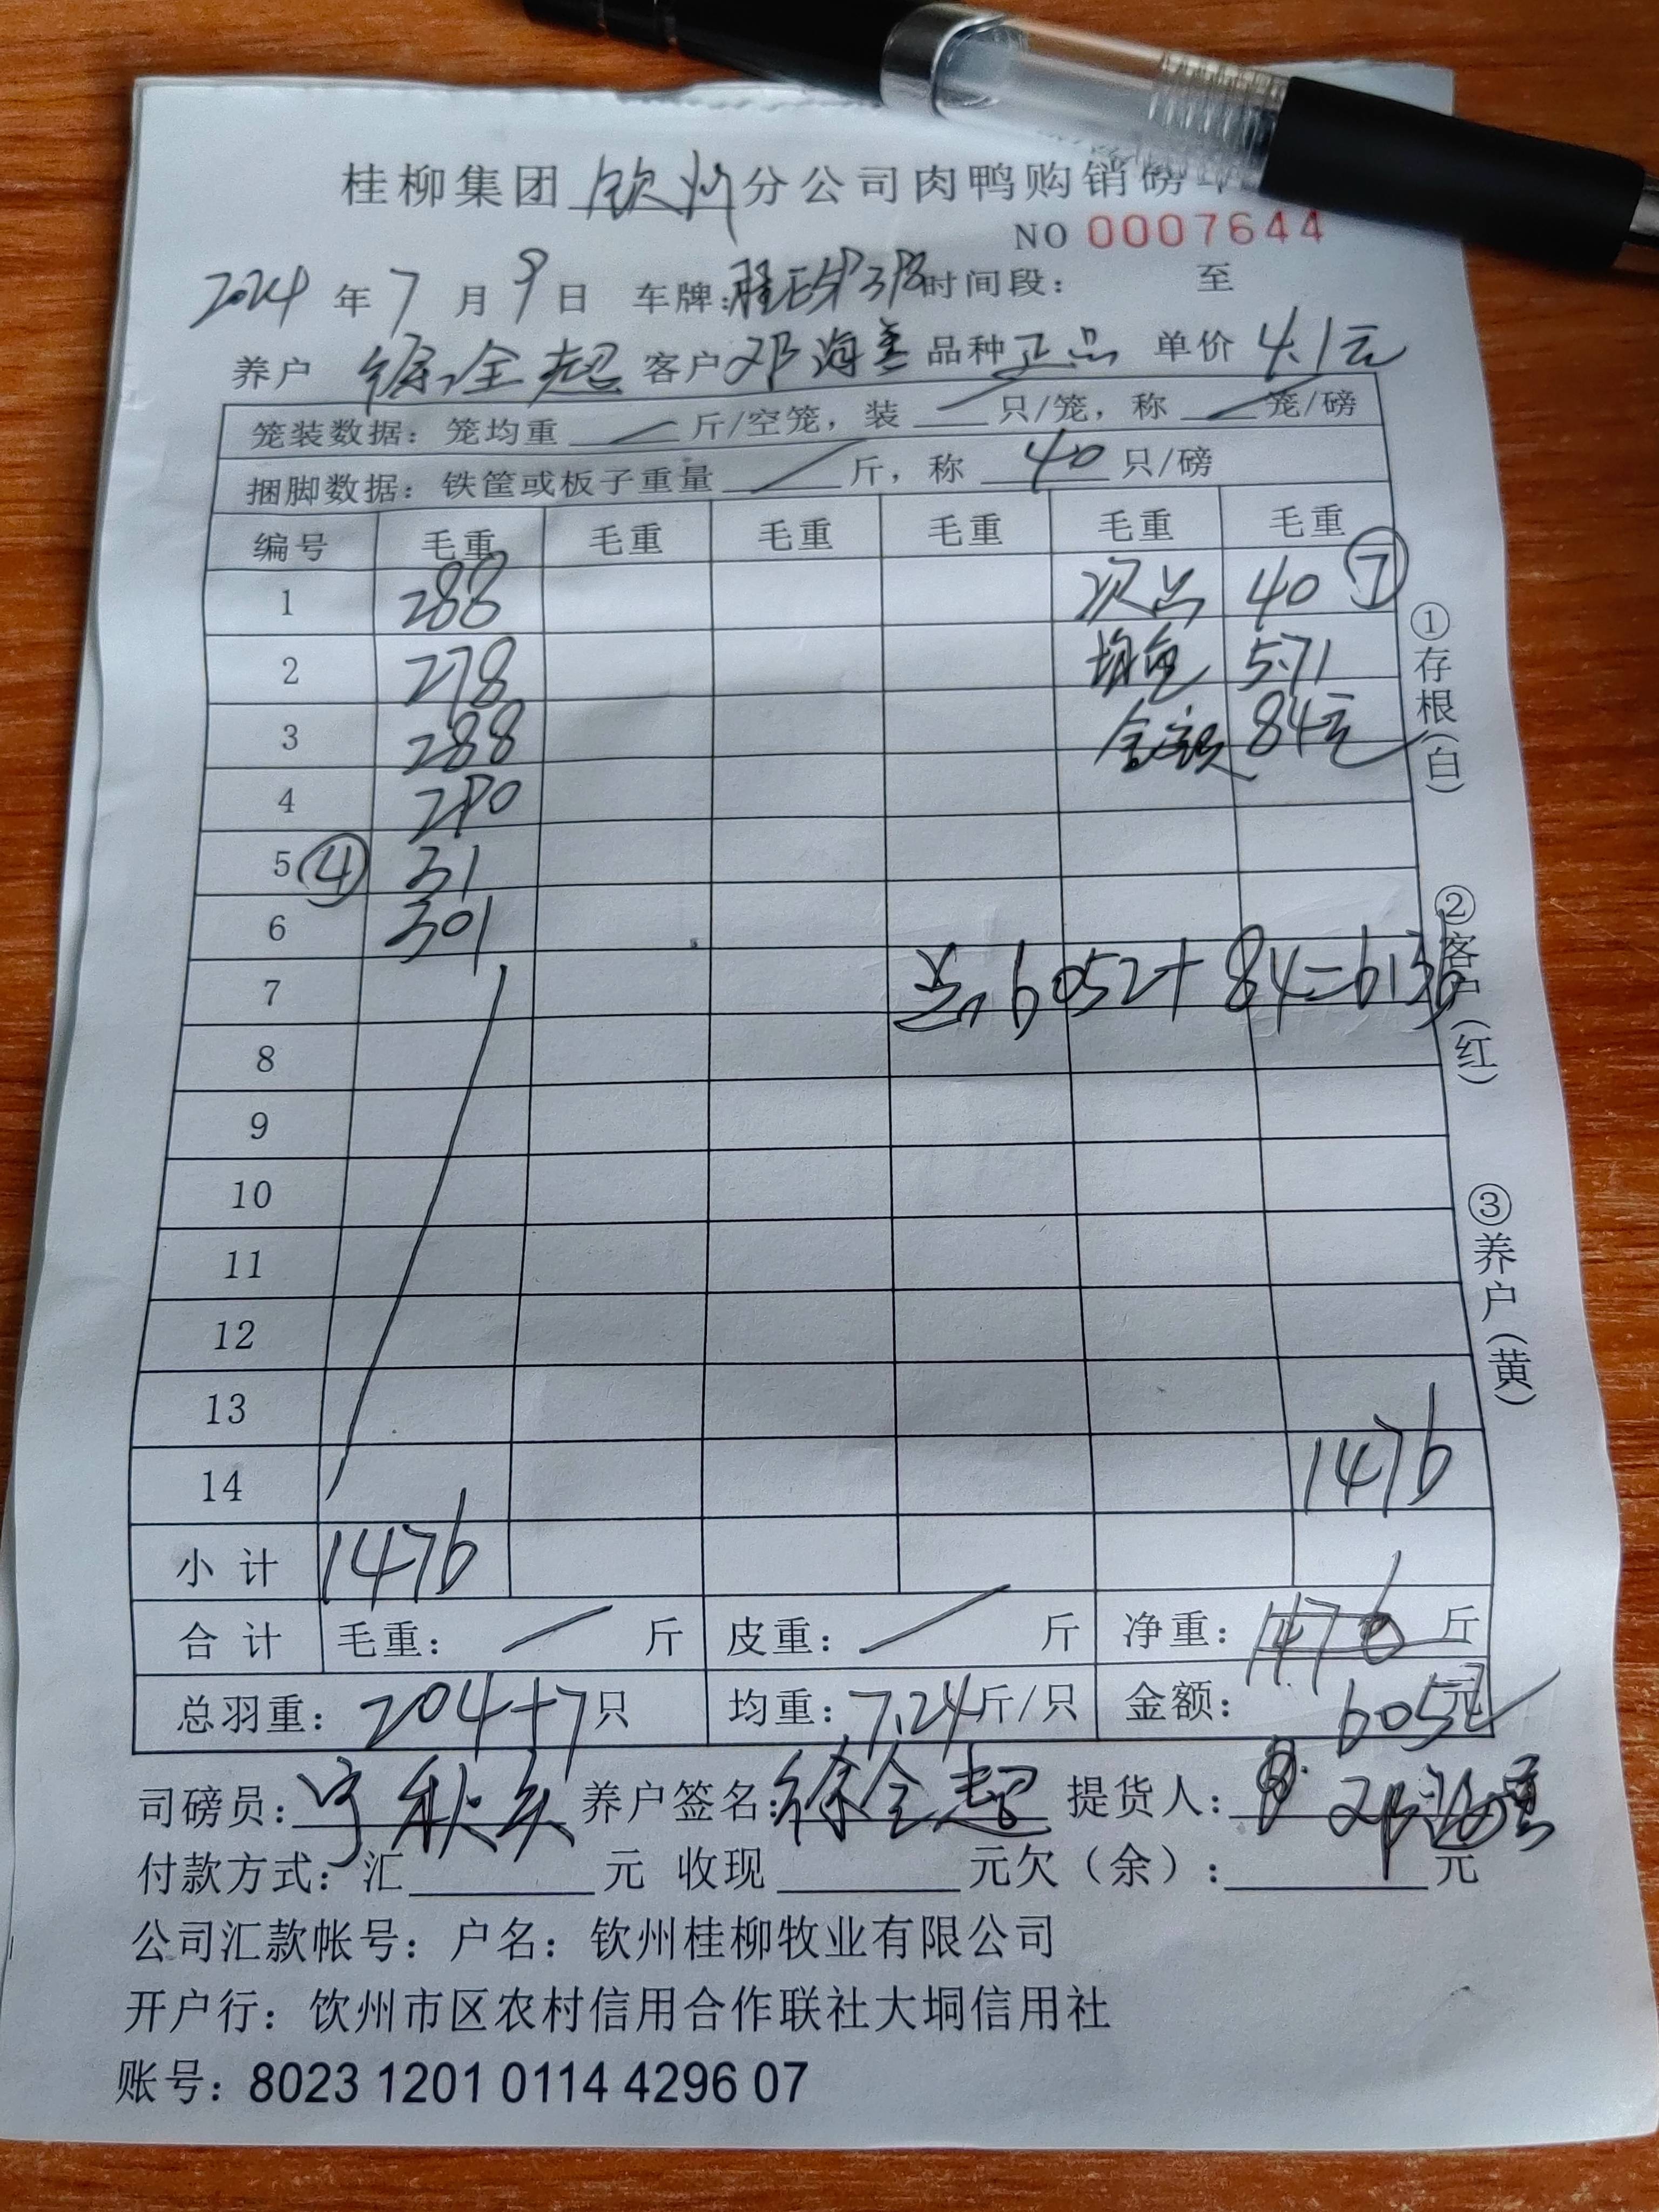 桂柳集团 钦州 分公司肉鸭购销磅
NO 0007644
2024 年 7 月 9 日 车牌: 时间段: 至
养户 徐全超 客户 邓海 品种 正品 单价 4.1元
笼装数据: 笼均重 斤/空笼, 装 只/笼, 称 笼/磅
捆脚数据: 铁筐或板子重量 斤, 称 40 只/磅
编号 毛重 毛重 毛重 毛重 毛重 毛重
1 288 次品 40 ⑦
2 278 均重 5.71
3 288 金额 84元
4 290
5 ④ 31
6 301
7 6052+84=6136
8
9
10
11
12
13
14 1476
小计 1476
合计 毛重: 斤 皮重: 斤 净重: 1476 斤
总羽重: 204+7 只 均重: 7.24 斤/只 金额: 6052 元
司磅员: 宁秋 养户签名: 徐全超 提货人: 邓海
付款方式: 汇 元 收现 元欠(余): 元
公司汇款帐号: 户名: 钦州桂柳牧业有限公司
开户行: 钦州市区农村信用合作联社大垌信用社
账号: 8023 1201 0114 4296 07
①存根(白)
②客户(红)
③养户(黄)